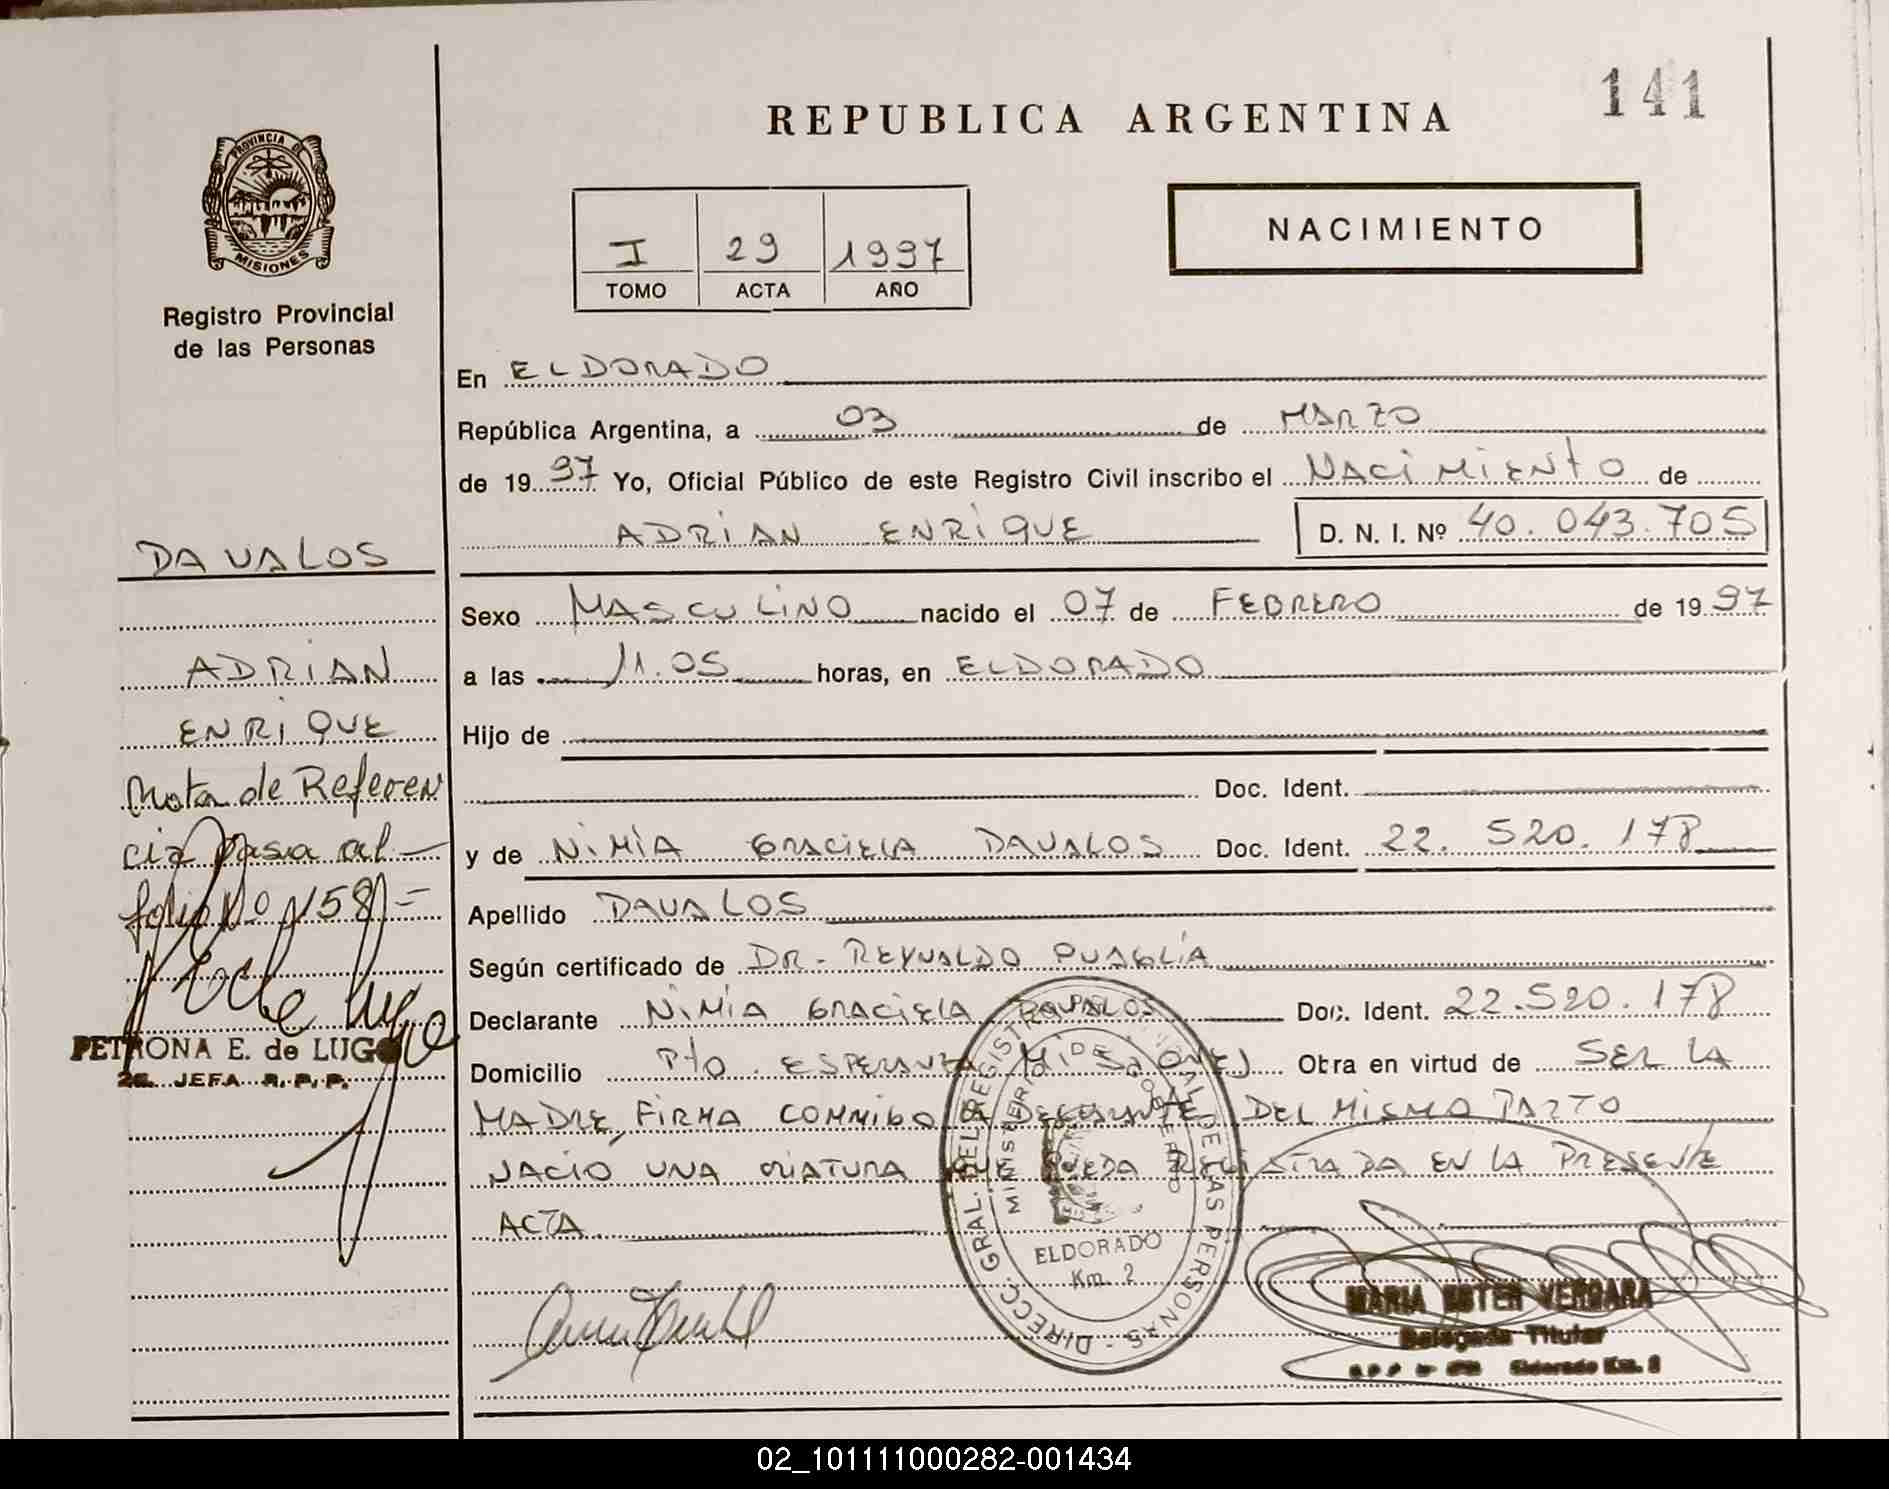 141
REPUBLICA ARGENTINA
PROVINCIA DE
MISIONES
Registro Provincial
de las Personas
I 29 1997
TOMO ACTA AÑO
NACIMIENTO
En ELDORADO
República Argentina, a 03 de MARZO
de 1997 Yo, Oficial Público de este Registro Civil inscribo el NACIMIENTO de
ADRIAN ENRIQUE D. N. I. Nº 40.043.705
Sexo MASCULINO nacido el 07 de FEBRERO de 1997
a las 11.05 horas, en ELDORADO
Hijo de
Doc. Ident.
y de NIMIA GRACIELA DAVALOS Doc. Ident. 22.520.178
Apellido DAVALOS
Según certificado de DR. REYNALDO PUAGLIA
Declarante NIMIA GRACIELA DAVALOS Doc. Ident. 22.520.178
Domicilio Pto. ESPERANZA MISIONES Obra en virtud de SER LA
MADRE, FIRMA CONMIGO DEL MISMO PARTO
NACIO UNA CRIATURA QUE QUEDA REGISTRADA EN LA PRESENTE
ACTA
DAVALOS
ADRIAN
ENRIQUE
Nota de Referen
cia pasa al
folio Nº 158
PETRONA E. de LUGO
JEFA R.P.P.
DIRECC. GRAL. DEL REGISTRO PROVINCIAL DE LAS PERSONAS
MINISTERIO DE GOBIERNO
ELDORADO
Km. 2
MARIA ESTER VERGARA
Delegada Titular
Eldorado Km. 2
02_101111000282-001434